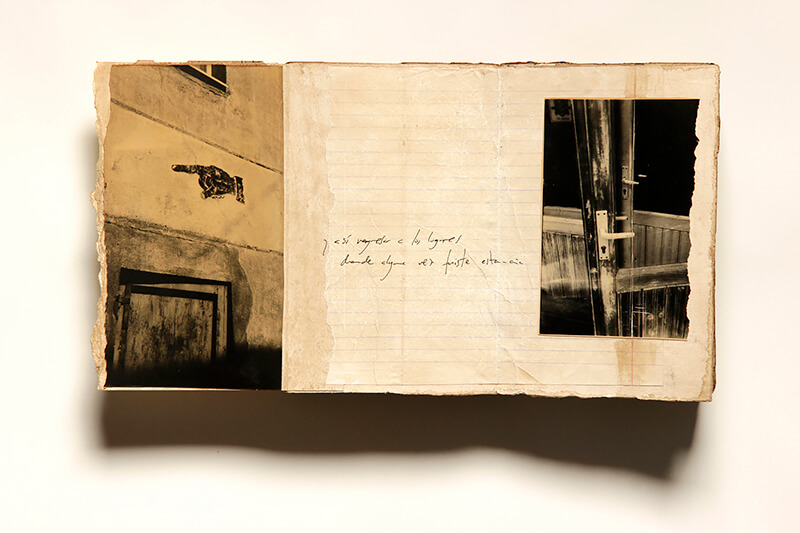 y así regresar a los lugares
donde alguna vez fuiste estancia